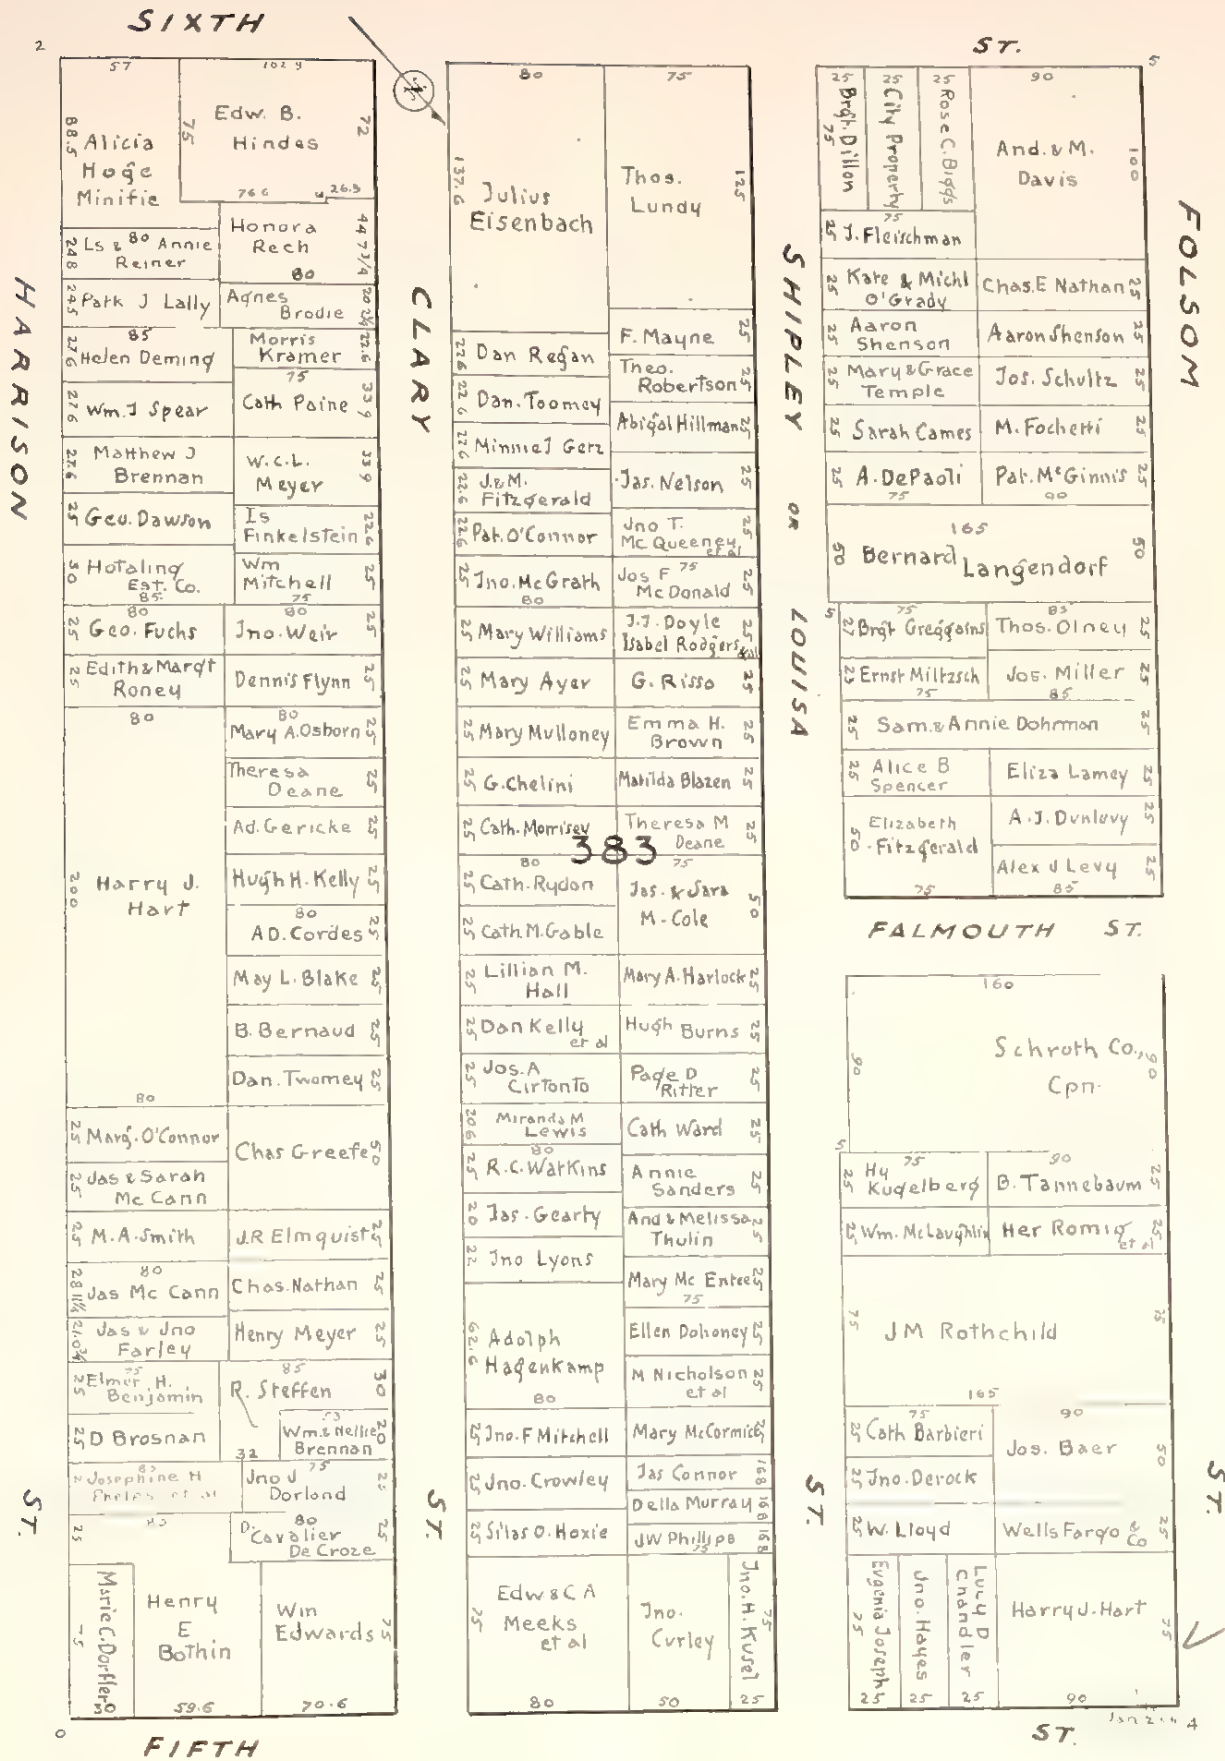 SIXTH
ST.
2
5
HARRISON
ST.
CLARY
ST.
SHIPLEY OR LOUISA
ST.
FOLSOM
ST.
57
88.5
Alicia
Hoge
Minifie
102 9
75
Edw. B.
Hindes
72
76 6
26.9
Honora
Rech
80
44 7 3/4
248
Ls & 80 Annie
Reiner
245
Patk J Lally
Agnes
Brodie
85
276
Helen Deming
Morris
Kramer
22.6
75
276
Wm. J Spear
Cath Paine
33 9
27.6
Matthew J
Brennan
W.C.L.
Meyer
33 9
25
Geo. Dawson
Is
Finkelstein
22.6
30
Hotaling
Est. Co.
85
Wm
Mitchell
25
75
80
25
Geo. Fuchs
80
Jno. Weir
25
25
Edith & Margt
Roney
Dennis Flynn
25
80
200
Harry J.
Hart
80
80
Mary A. Osborn
25
Theresa
Deane
25
Ad. Gericke
25
Hugh H. Kelly
25
80
A D. Cordes
25
May L. Blake
25
B. Bernaud
25
Dan. Twomey
25
25
Marg. O'Connor
Chas Greefe
50
25
Jas & Sarah
Mc Cann
25
M. A. Smith
J.R Elmquist
25
80
28 11 1/4
Jas Mc Cann
Chas. Nathan
25
21.0 3/4
Jas & Jno
Farley
Henry Meyer
25
75
25
Elmer H.
Benjamin
85
R. Steffen
30
32
25
D Brosnan
53
Wm. & Nellie
Brennan
20
85
Josephine H
Phelps et al
75
Jno J
Dorland
25
85
25
80
D.
Cavalier
De Croze
25
Marie C. Dorfler
75
30
Henry
E
Bothin
59.6
Win
Edwards
75
70.6
80
137.6
Julius
Eisenbach
75
Thos.
Lundy
125
F. Mayne
25
22.6
Dan Regan
Theo.
Robertson
25
22.6
Dan. Toomey
Abigal Hillman
25
22.6
Minnie J Getz
22.6
J. & M.
Fitzgerald
Jas. Nelson
25
22.6
Pat. O'Connor
Jno T.
Mc Queeney
et al
25
25
Jno. McGrath
80
Jos F 75
Mc Donald
25
25
Mary Williams
J.J. Doyle
Isabel Rodgers
25
25
Mary Ayer
G. Risso
25
25
Mary Mulloney
Emma H.
Brown
25
25
G. Chelini
Matilda Blazen
25
25
Cath. Morrisey
Theresa M
Deane
25
383
80
75
25
Cath. Rydon
Jas. & Sara
M. Cole
50
25
Cath M. Gable
25
Lillian M.
Hall
Mary A. Harlock
25
25
Dan Kelly
et al
Hugh Burns
25
25
Jos. A
Cirtonto
Page D
Ritter
25
20 6
Miranda M
Lewis
Cath Ward
25
80
25
R. C. Watkins
Annie
Sanders
25
20
Jas. Gearty
And & Melissa
Thulin
25
22
Jno Lyons
Mary Mc Entee
25
75
62.6
Adolph
Hagenkamp
80
Ellen Dohoney
25
M Nicholson
et al
25
25
Jno. F Mitchell
Mary McCormick
25
25
Jno. Crowley
Jas Connor
168
Della Murray
168
25
Silas O. Hoxie
JW Phillips
168
75
75
Edw & C A
Meeks
et al
80
Jno.
Curley
50
Jno. H. Kusel
75
25
25
Brgt. Dillon
75
25
City Property
25
Rose C. Biggs
90
And. & M.
Davis
100
75
25
J. Fleischman
25
Kate & Michl
O'Grady
Chas. E Nathan
25
25
Aaron
Shenson
Aaron Shenson
25
25
Mary & Grace
Temple
Jos. Schultz
25
25
Sarah Cames
M. Fochetti
25
25
A. DePaoli
75
Pat. McGinnis
90
25
165
50
Bernard Langendorf
50
5
75
27
Brgt Greggains
85
Thos. Olney
25
23
Ernst Miltzsch
75
Jos. Miller
85
25
25
Sam. & Annie Dohrman
25
25
Alice B
Spencer
Eliza Lamey
25
50
Elizabeth
Fitzgerald
75
A. J. Dunlavy
25
Alex J Levy
85
25
FALMOUTH ST.
160
90
Schroth Co.,
Cpn.
90
5
75
25
Hy
Kugelberg
90
B. Tannebaum
25
25
Wm. McLaughlin
Her Romig
et al
25
75
J M Rothchild
75
165
75
25
Cath Barbieri
90
Jos. Baer
50
25
Jno. Derock
25
W. Lloyd
Wells Fargo &
Co
25
Eugenia Joseph
75
25
Jno. Hayes
25
Lucy D
Chandler
25
Harry J. Hart
75
90
0
FIFTH
ST.
4